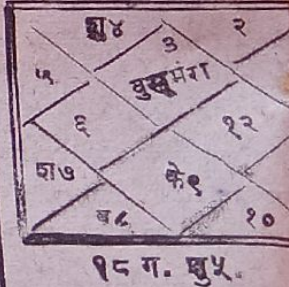 शु४ ३ २
५ बुसूमंरा
६ १२
श७ के९
च८ १०
१८ ग. गु५.